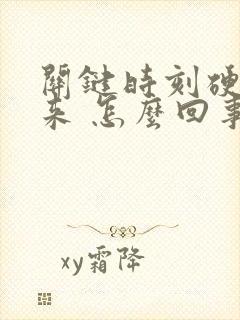 關鍵時刻硬
来 怎麼回事
xy霜降